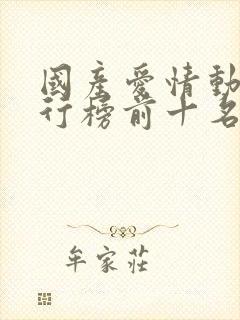 國產愛情動
行榜前十名
牟家莊